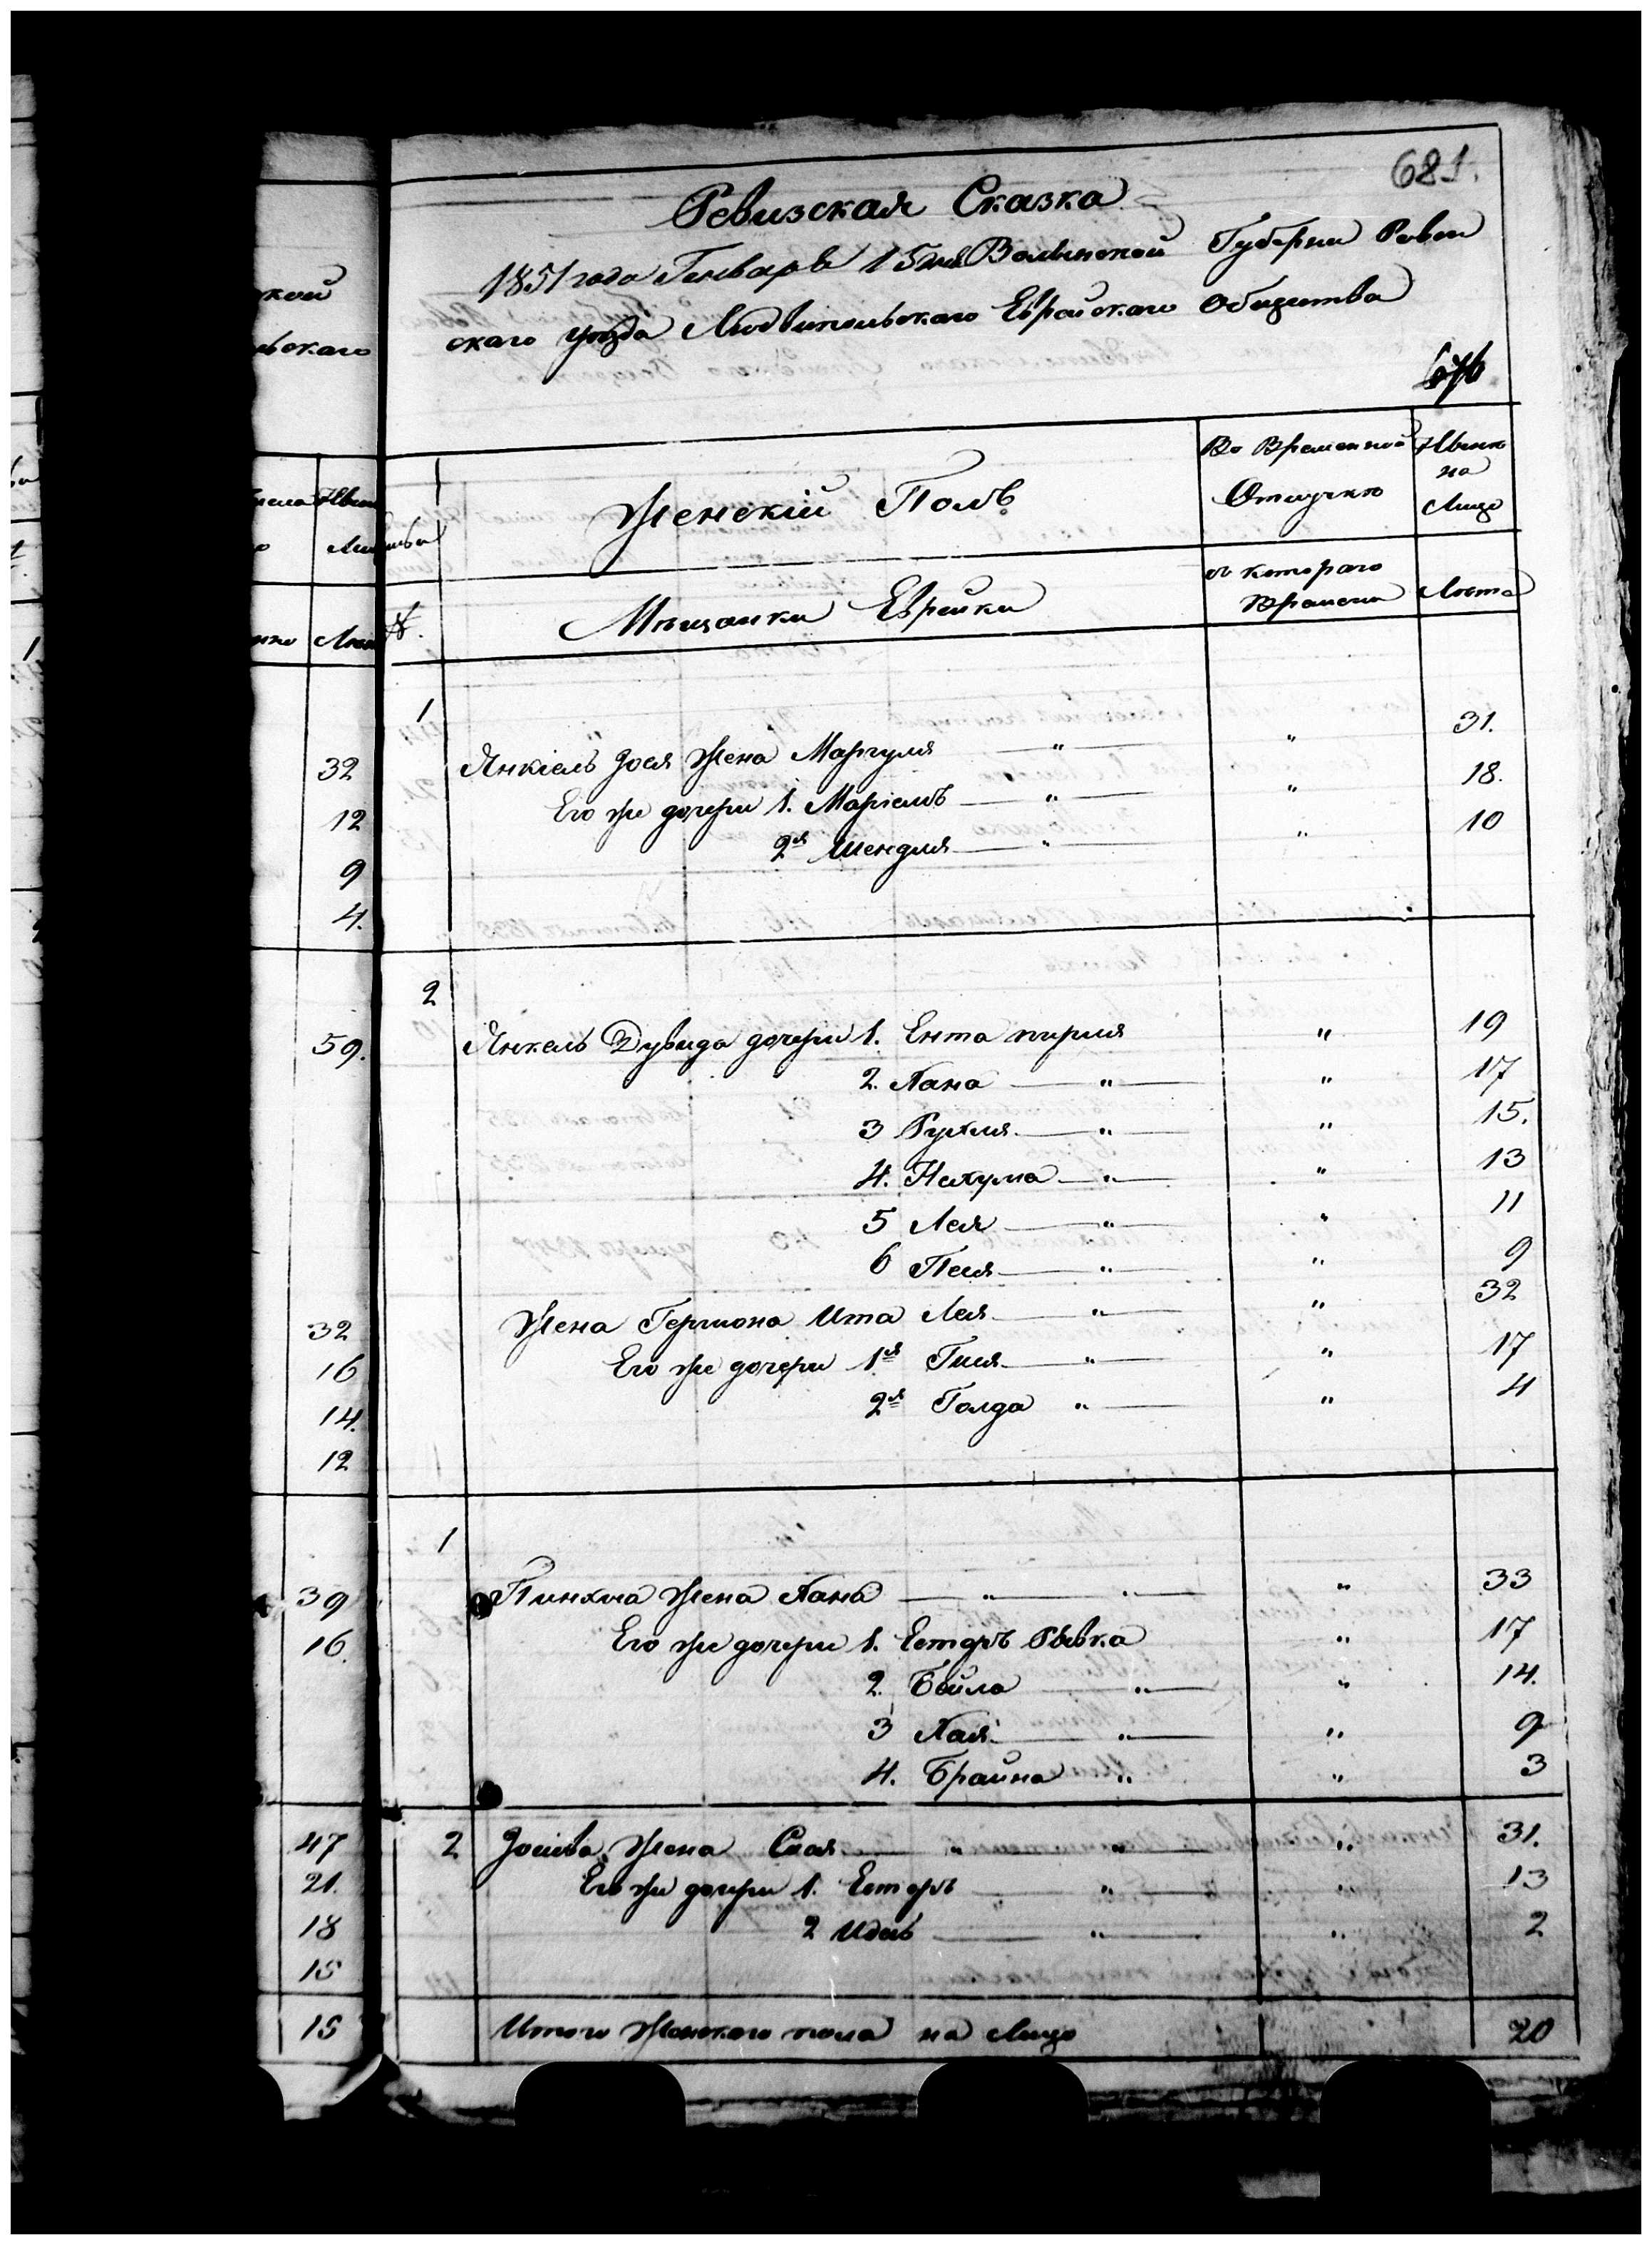 681.
Ревизская Сказка
1851 года Генваря 15 дня Волынской Губернии Ровен
скаго уезда Людвипольскаго Еврейскаго Общества
676
ской
льскаго
Женскій Полъ
Во Временной
Отлучке
Ныне
на
Лицо
№.
Мещанки Еврейки
съ котораго
Времени
Лета
1
Янкіель Іося Жена Маргуля " " 31.
Его же дочери 1. Маріемъ " " 18.
2я Шендля " " 10
32
12
9
4.
2
Янкель Дувида дочери 1. Ента пирля " 19
2. Хана " " 17
3 Рухля " " 15.
4. Нехума " " 13
5 Лея " " 11
6 Песя " " 9
Жена Гершона Ита Лея " " 32
Его же дочери 1я Гися " " 17
2я Голда " " 4
59.
32
16
14.
12
1
Пинхоса Жена Хана " " " 33
Его же дочери 1. Естеръ Рывка " 17
2. Бейла " " 14.
3 Хая " " 9
4. Брайна " " 3
39
16.
2 Іосіова Жена Сося " " " 31.
Его же дочери 1. Естеръ " " 13
2 Идесь " " 2
47
21.
18
15
Итого Женскаго пола на Лицо 20
15